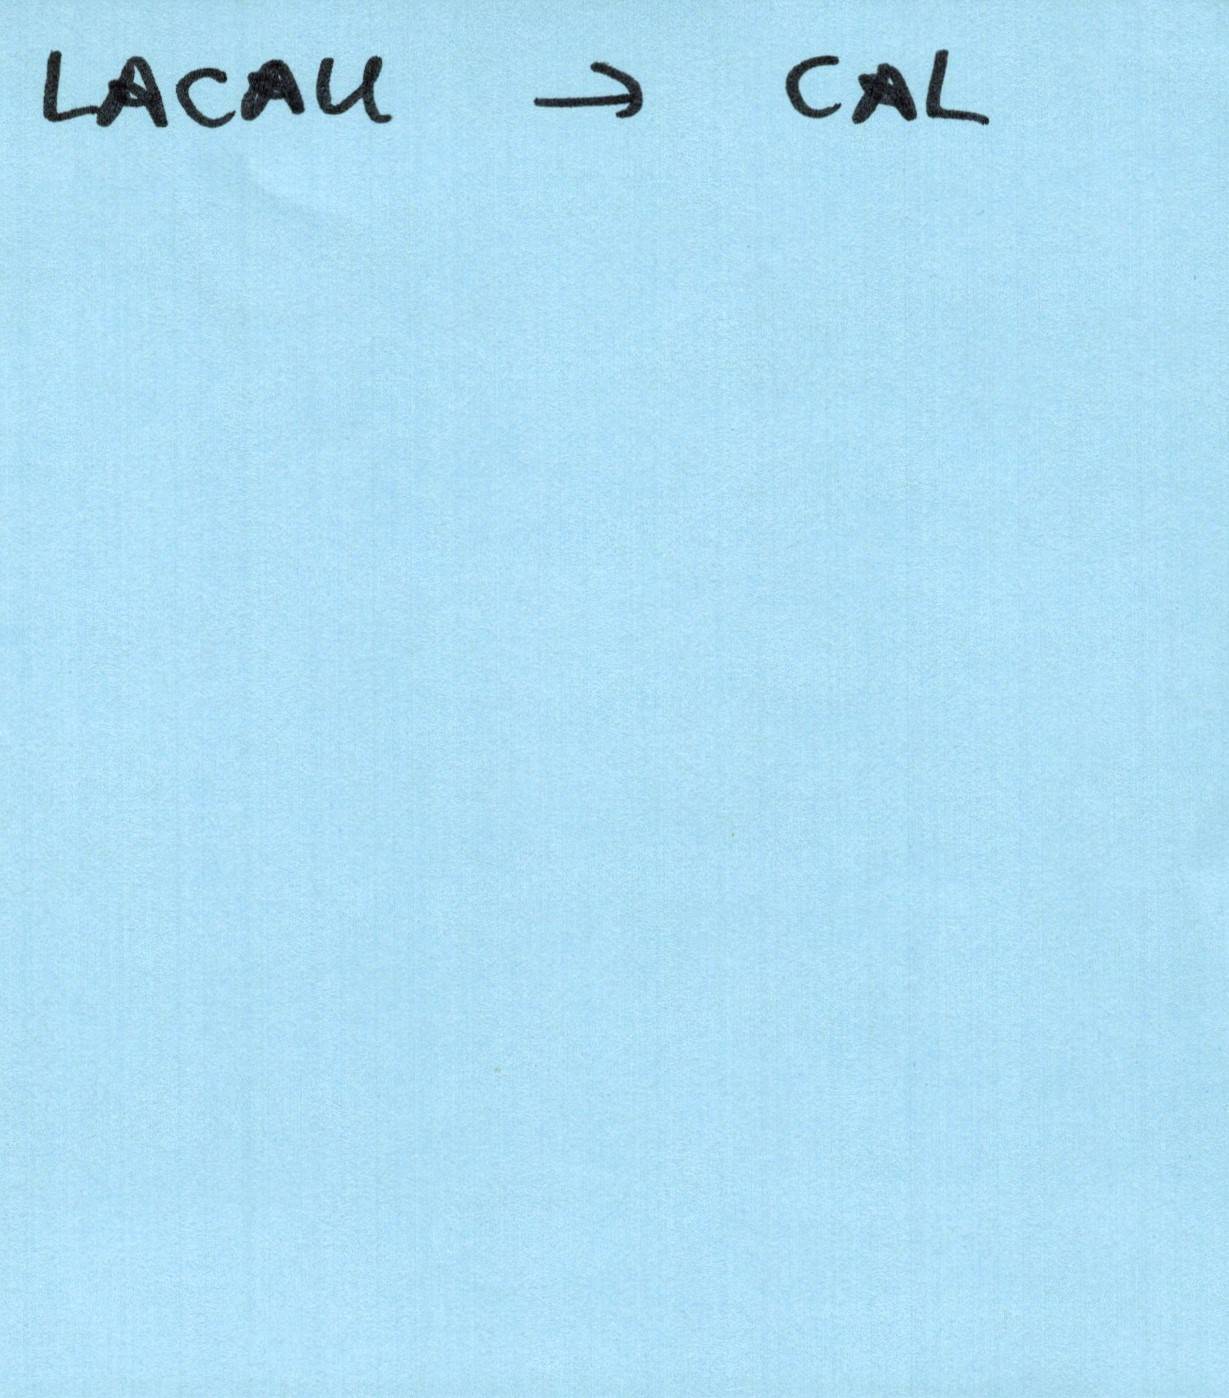 LACAU → CAL